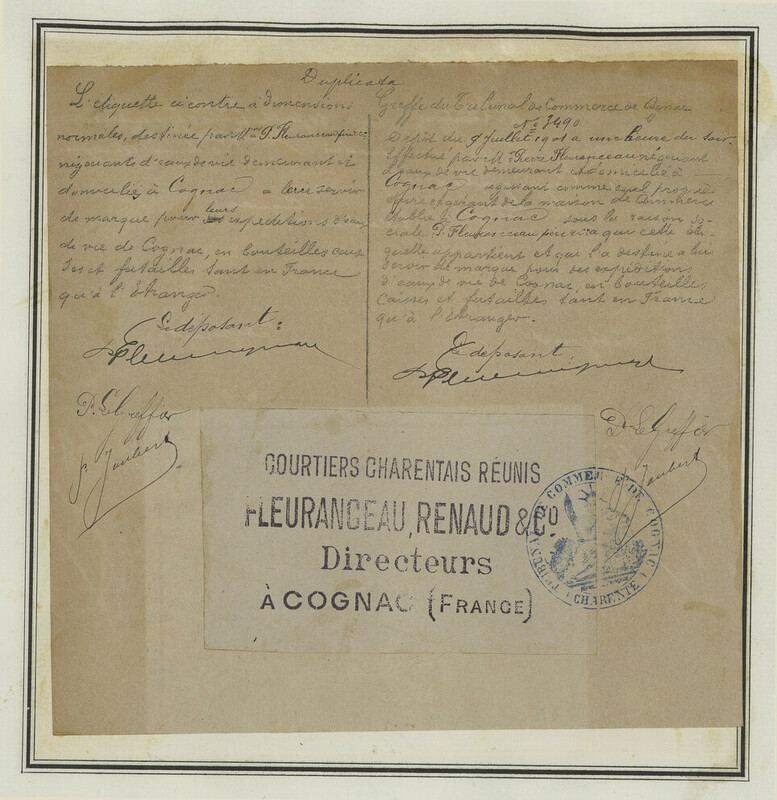 Duplicata
L'étiquette ci contre à dimensions
normales, destinée par Mrs P. Fleuranceau
négociants d'eaux de vie demeurant et
domiciliés à Cognac a leur servir
de marque pour leurs expéditions d'eau
de vie de Cognac, en bouteilles cais
ses et futailles tant en France
qu'à l'Etranger.
Le déposant:
P. Le Greffier
P. Joubert
Greffe du Tribunal de Commerce de Cognac
No 3490
Dépôt du 9 Juillet à une heure du soir
Effectué par Mr Pierre Fleuranceau négociant
d'eaux de vie demeurant et domicilié à
Cognac agissant comme
et gérant de la maison de Commerce
établie à Cognac sous la raison so-
ciale P. Fleuranceau a qui cette éti
quette appartient et qui l'a destinée a lui
servir de marque pour des expéditions
d'eaux de vie de Cognac, en bouteilles
caisses et futailles tant en France
qu'à l'étranger.
Le déposant:
P. Le Greffier
Joubert
COURTIERS CHARENTAIS RÉUNIS
FLEURANCEAU, RENAUD & CO
Directeurs
À COGNAC (FRANCE)
TRIBUNAL DE COMMERCE DE COGNAC
CHARENTE